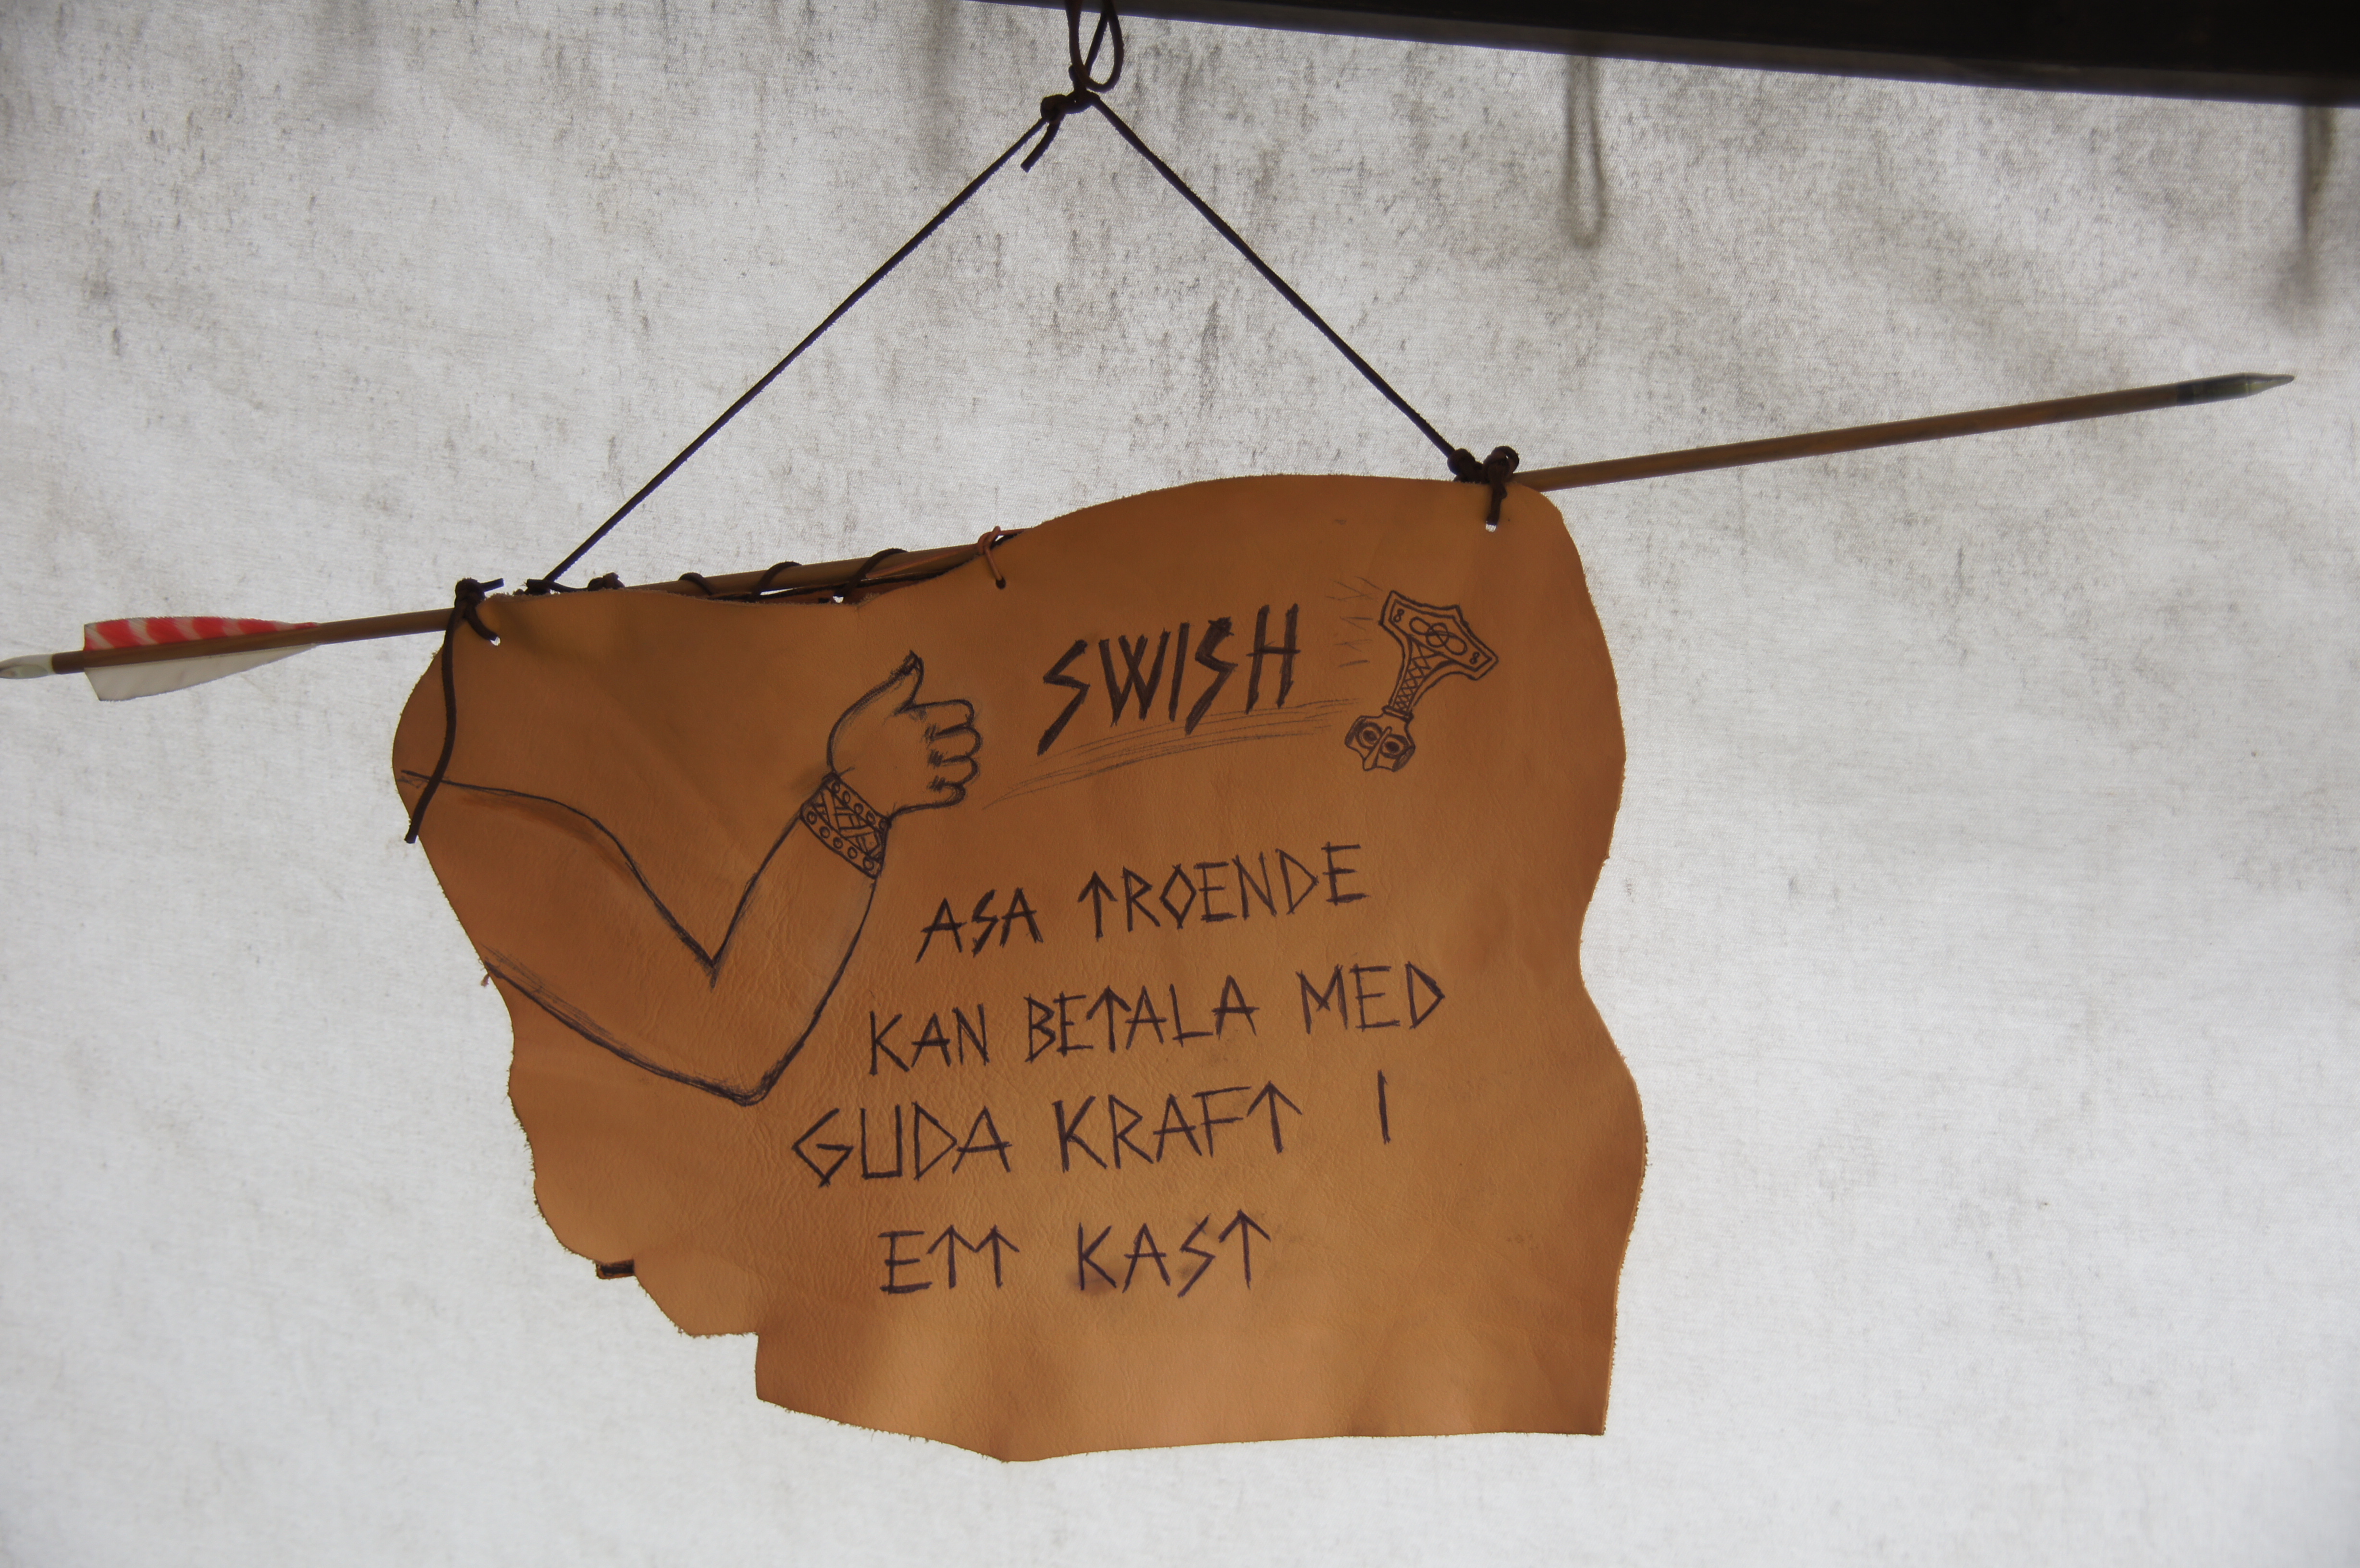 SWISH
ASA TROENDE
KAN BETALA MED
GUDA KRAFT I
ETT KAST